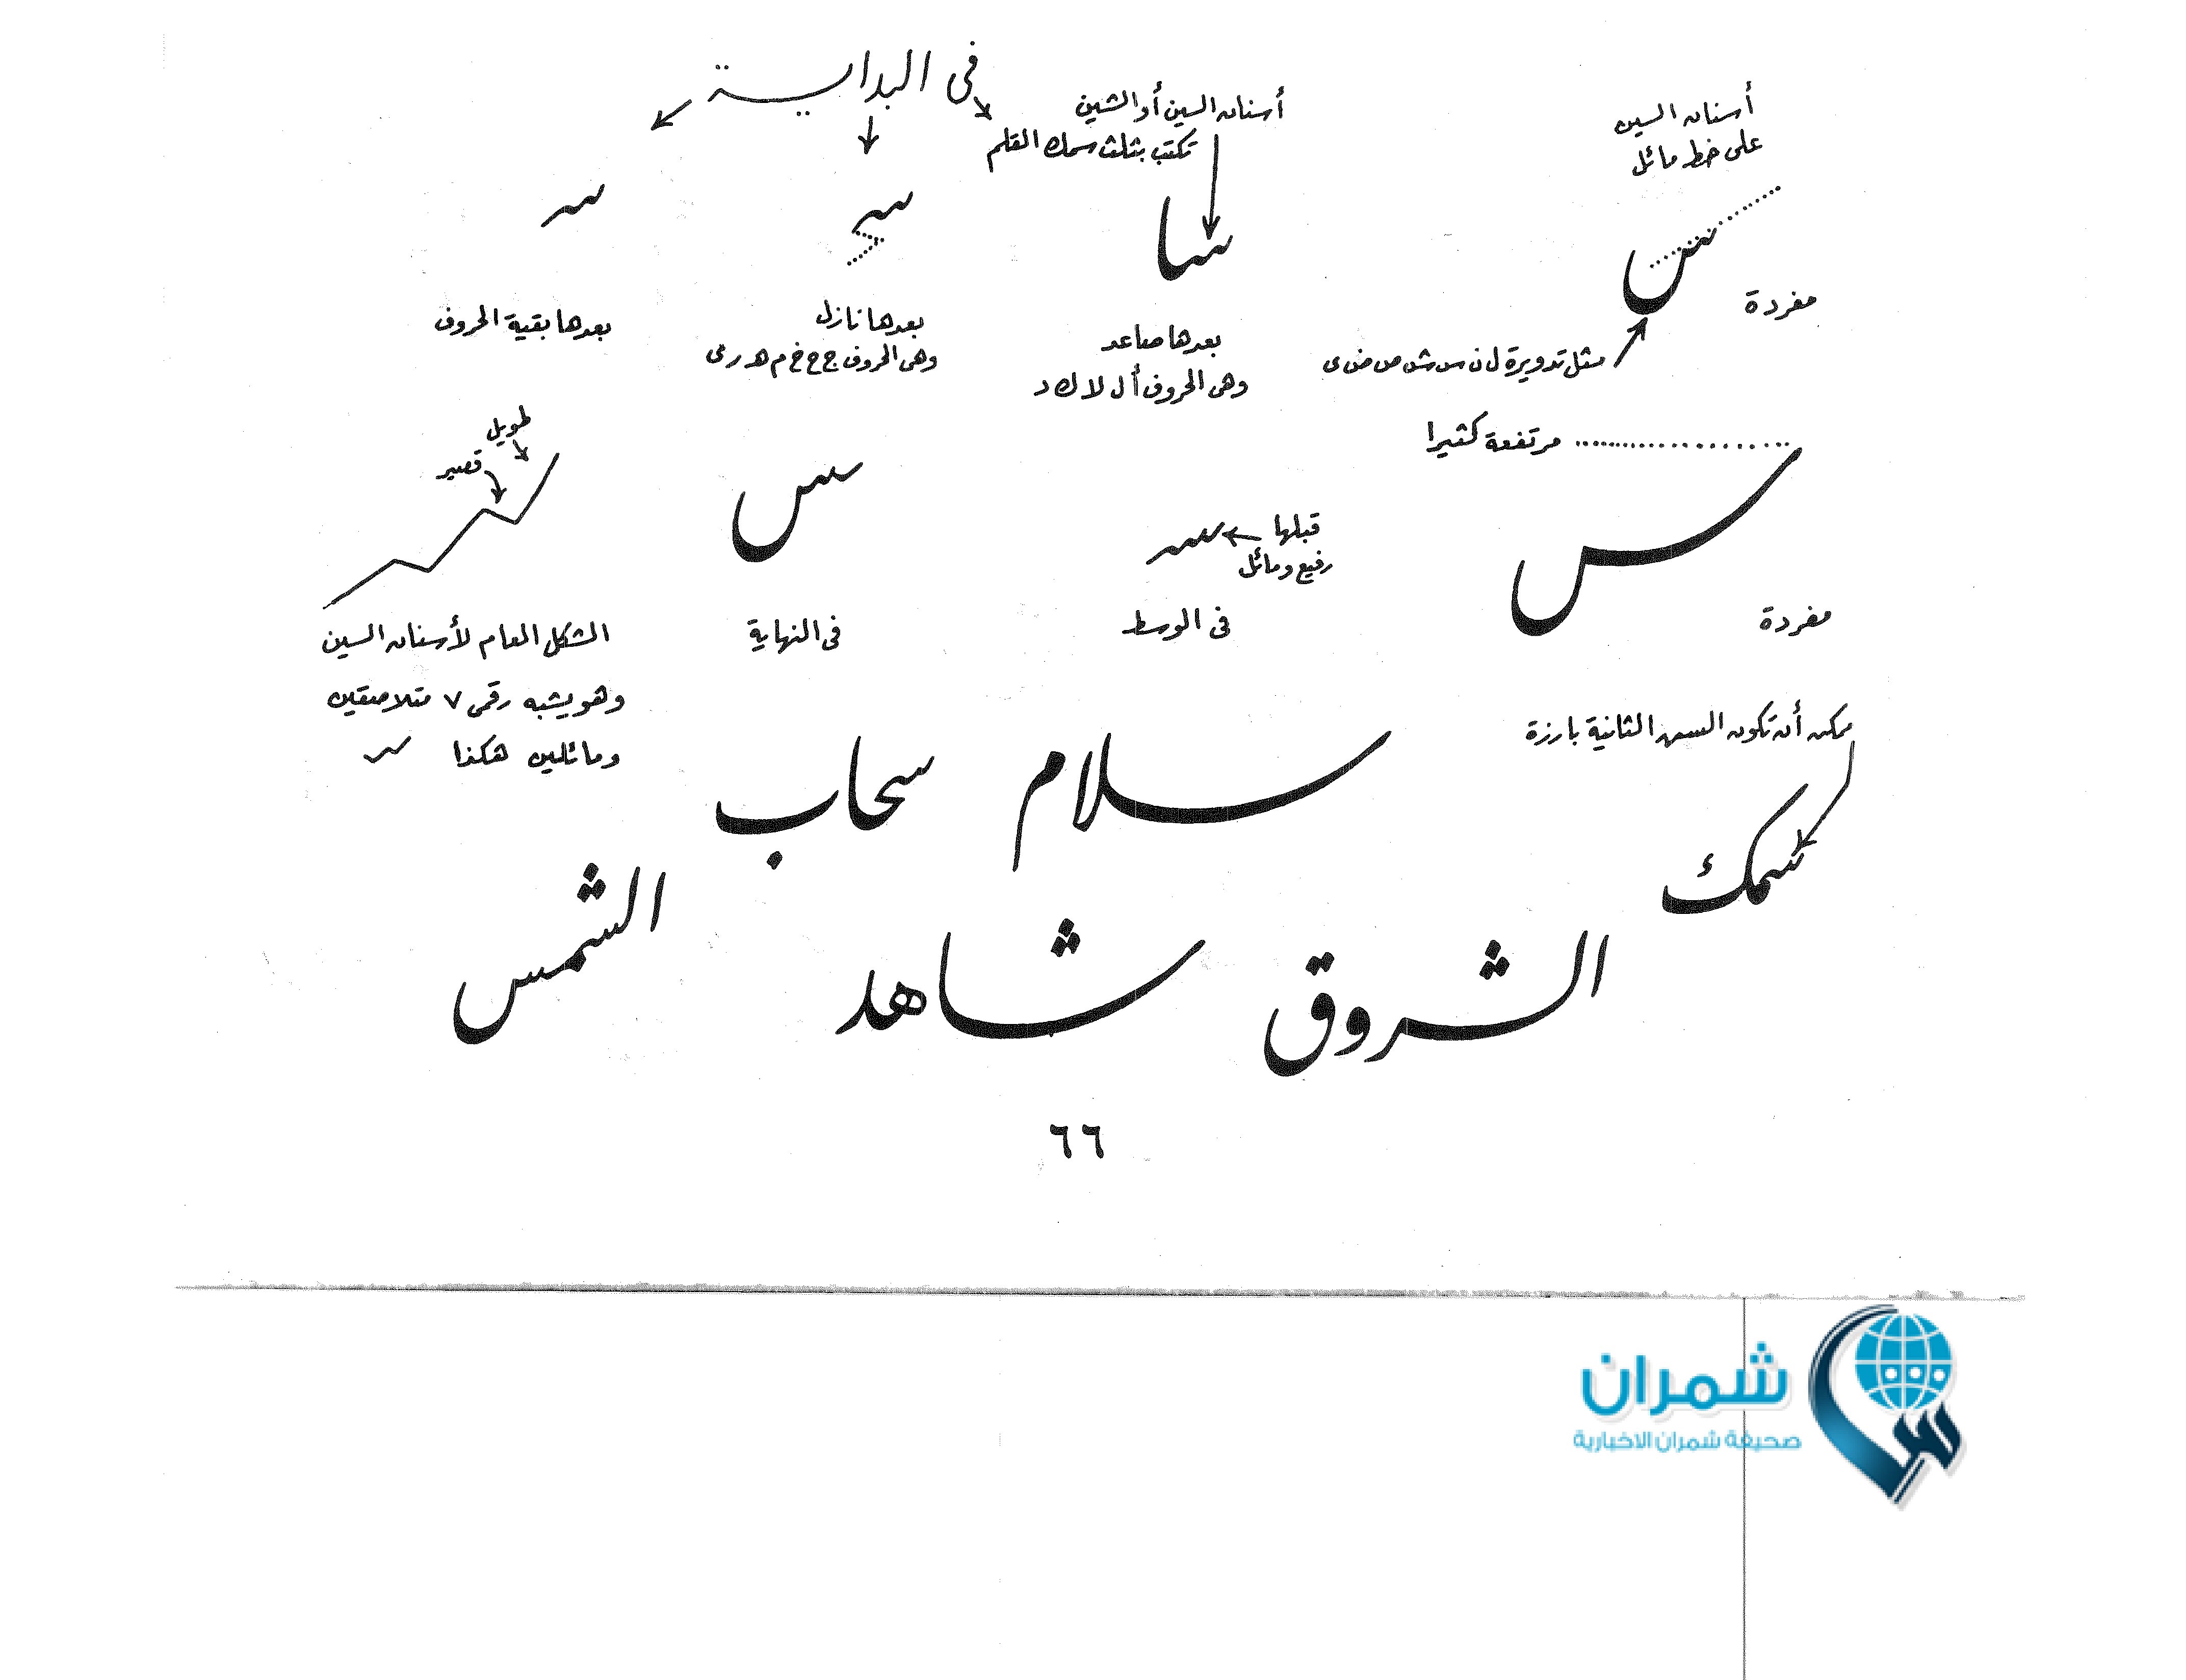 فى البدايـــة
أسنان السين أو الشين
تكتب بثلث سمك القلم
أسنان السين
على خط مائل
س
سا
سـ
سـ
مفردة
مثل تدويرة ل ن س ش ص ض ى
بعدها صاعد
وهى الحروف أ ل لا ك د
بعدها نازل
وهى الحروف ج ح خ م هـ ر ى
بعدها بقية الحروف
مرتفعة كثيرا
س
مفردة
قبلها
رفيع ومائل
ـسـ
فى الوسط
ـس
فى النهاية
طويل
قصير
الشكل العام لأسنان السين
وهو يشبه رقمى ٧ متلاصقين
ومائلين هكذا
يمكن أن تكون السن الثانية بارزة
سمك
سلام
سحاب
الشروق
شاهد
الشمس
٦٦
شمران
صحيفة شمران الاخبارية